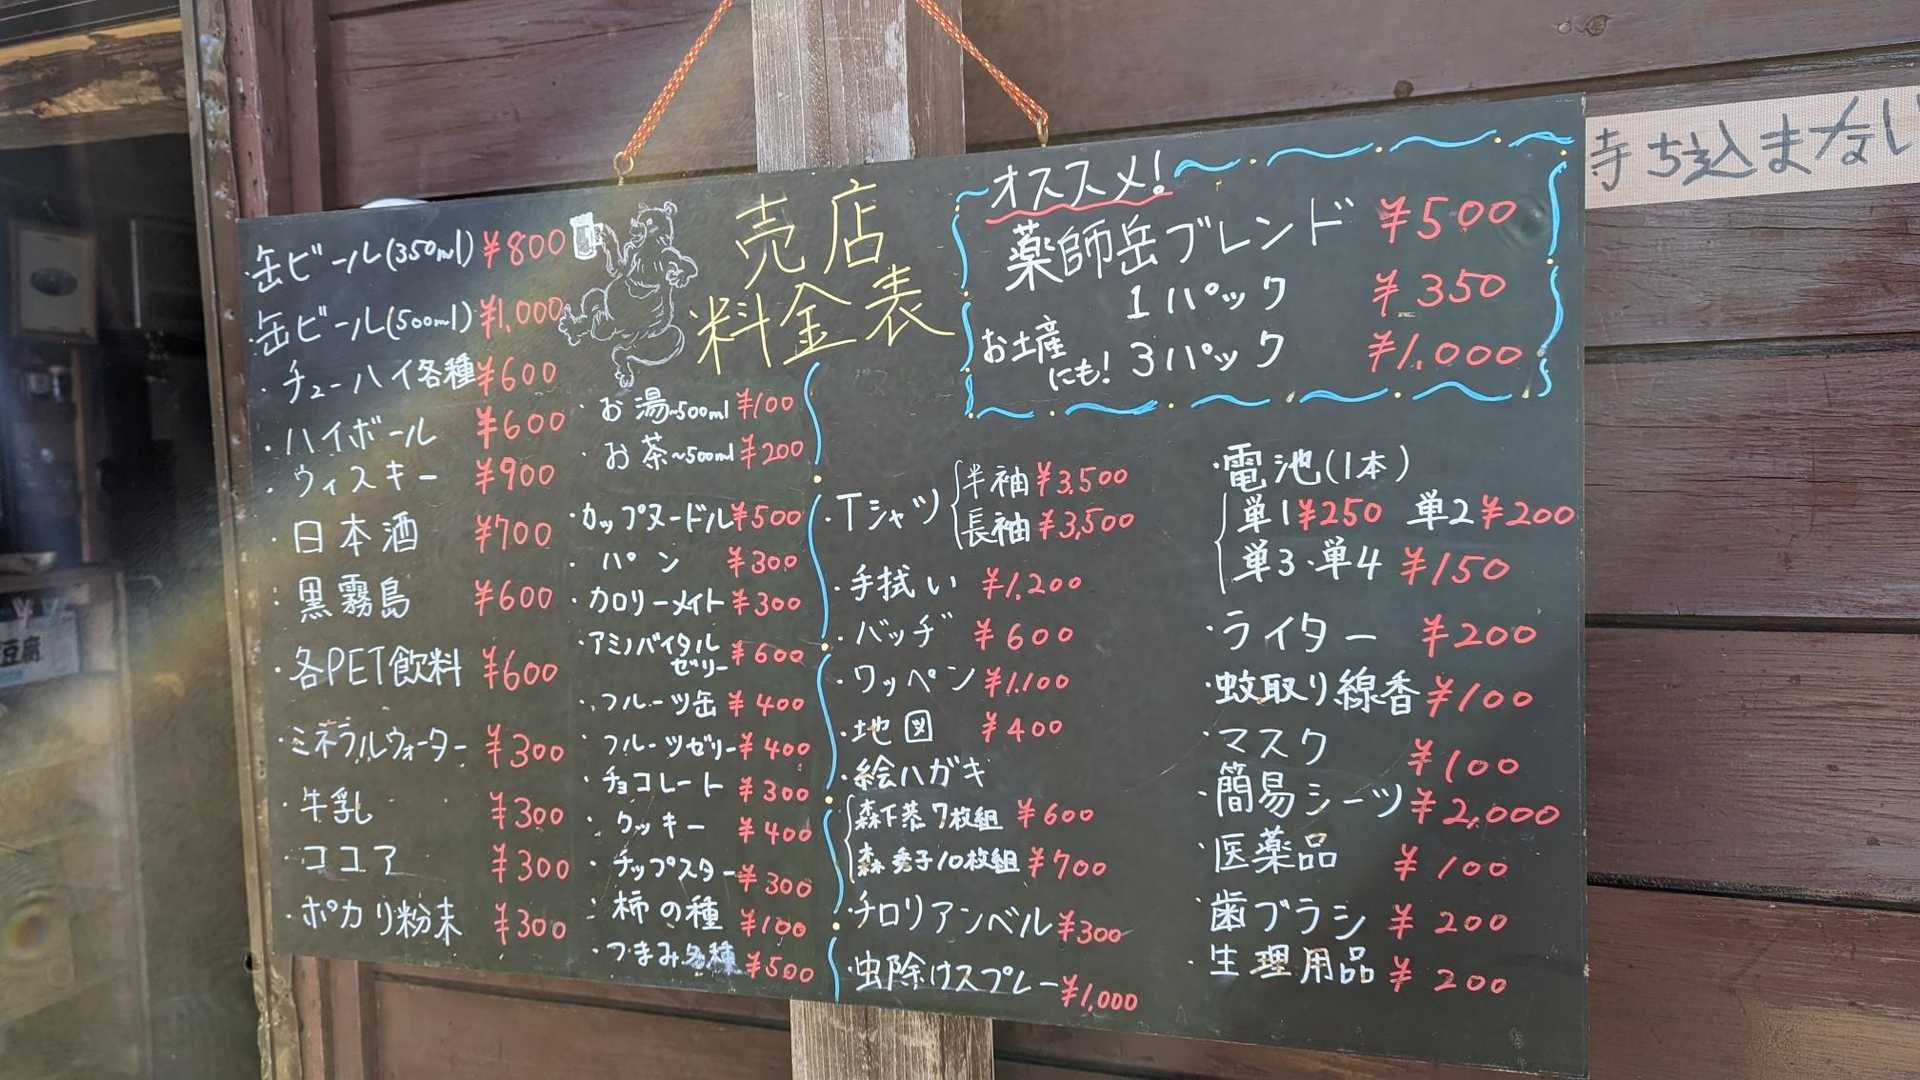 売店
料金表
・缶ビール(350ml) ¥800
・缶ビール(500ml) ¥1,000
・チューハイ各種 ¥600
・ハイボール ¥600
・ウィスキー ¥900
・日本酒 ¥700
・黒霧島 ¥600
・各PET飲料 ¥600
・ミネラルウォーター ¥300
・牛乳 ¥300
・ココア ¥300
・ポカリ粉末 ¥300
・お湯~500ml ¥100
・お茶~500ml ¥200
・カップヌードル ¥500
・パン ¥300
・カロリーメイト ¥300
・アミノバイタル
ゼリー ¥600
・フルーツ缶 ¥400
・フルーツゼリー ¥400
・チョコレート ¥300
・クッキー ¥400
・チップスター ¥300
・柿の種 ¥100
・つまみ各種 ¥500
オススメ!
薬師岳ブレンド ¥500
1パック ¥350
お土産
にも! 3パック ¥1,000
・Tシャツ
半袖 ¥3,500
長袖 ¥3,500
・手拭い ¥1,200
・バッヂ ¥600
・ワッペン ¥1,100
・地図 ¥400
・絵ハガキ
森下恭 7枚組 ¥600
森秀子 10枚組 ¥700
・チロリアンベル ¥300
・虫除けスプレー ¥1,000
・電池(1本)
単1 ¥250 単2 ¥200
単3・単4 ¥150
・ライター ¥200
・蚊取り線香 ¥100
・マスク ¥100
・簡易シーツ ¥2,000
・医薬品 ¥100
・歯ブラシ ¥200
・生理用品 ¥200
持ち込まない
豆腐